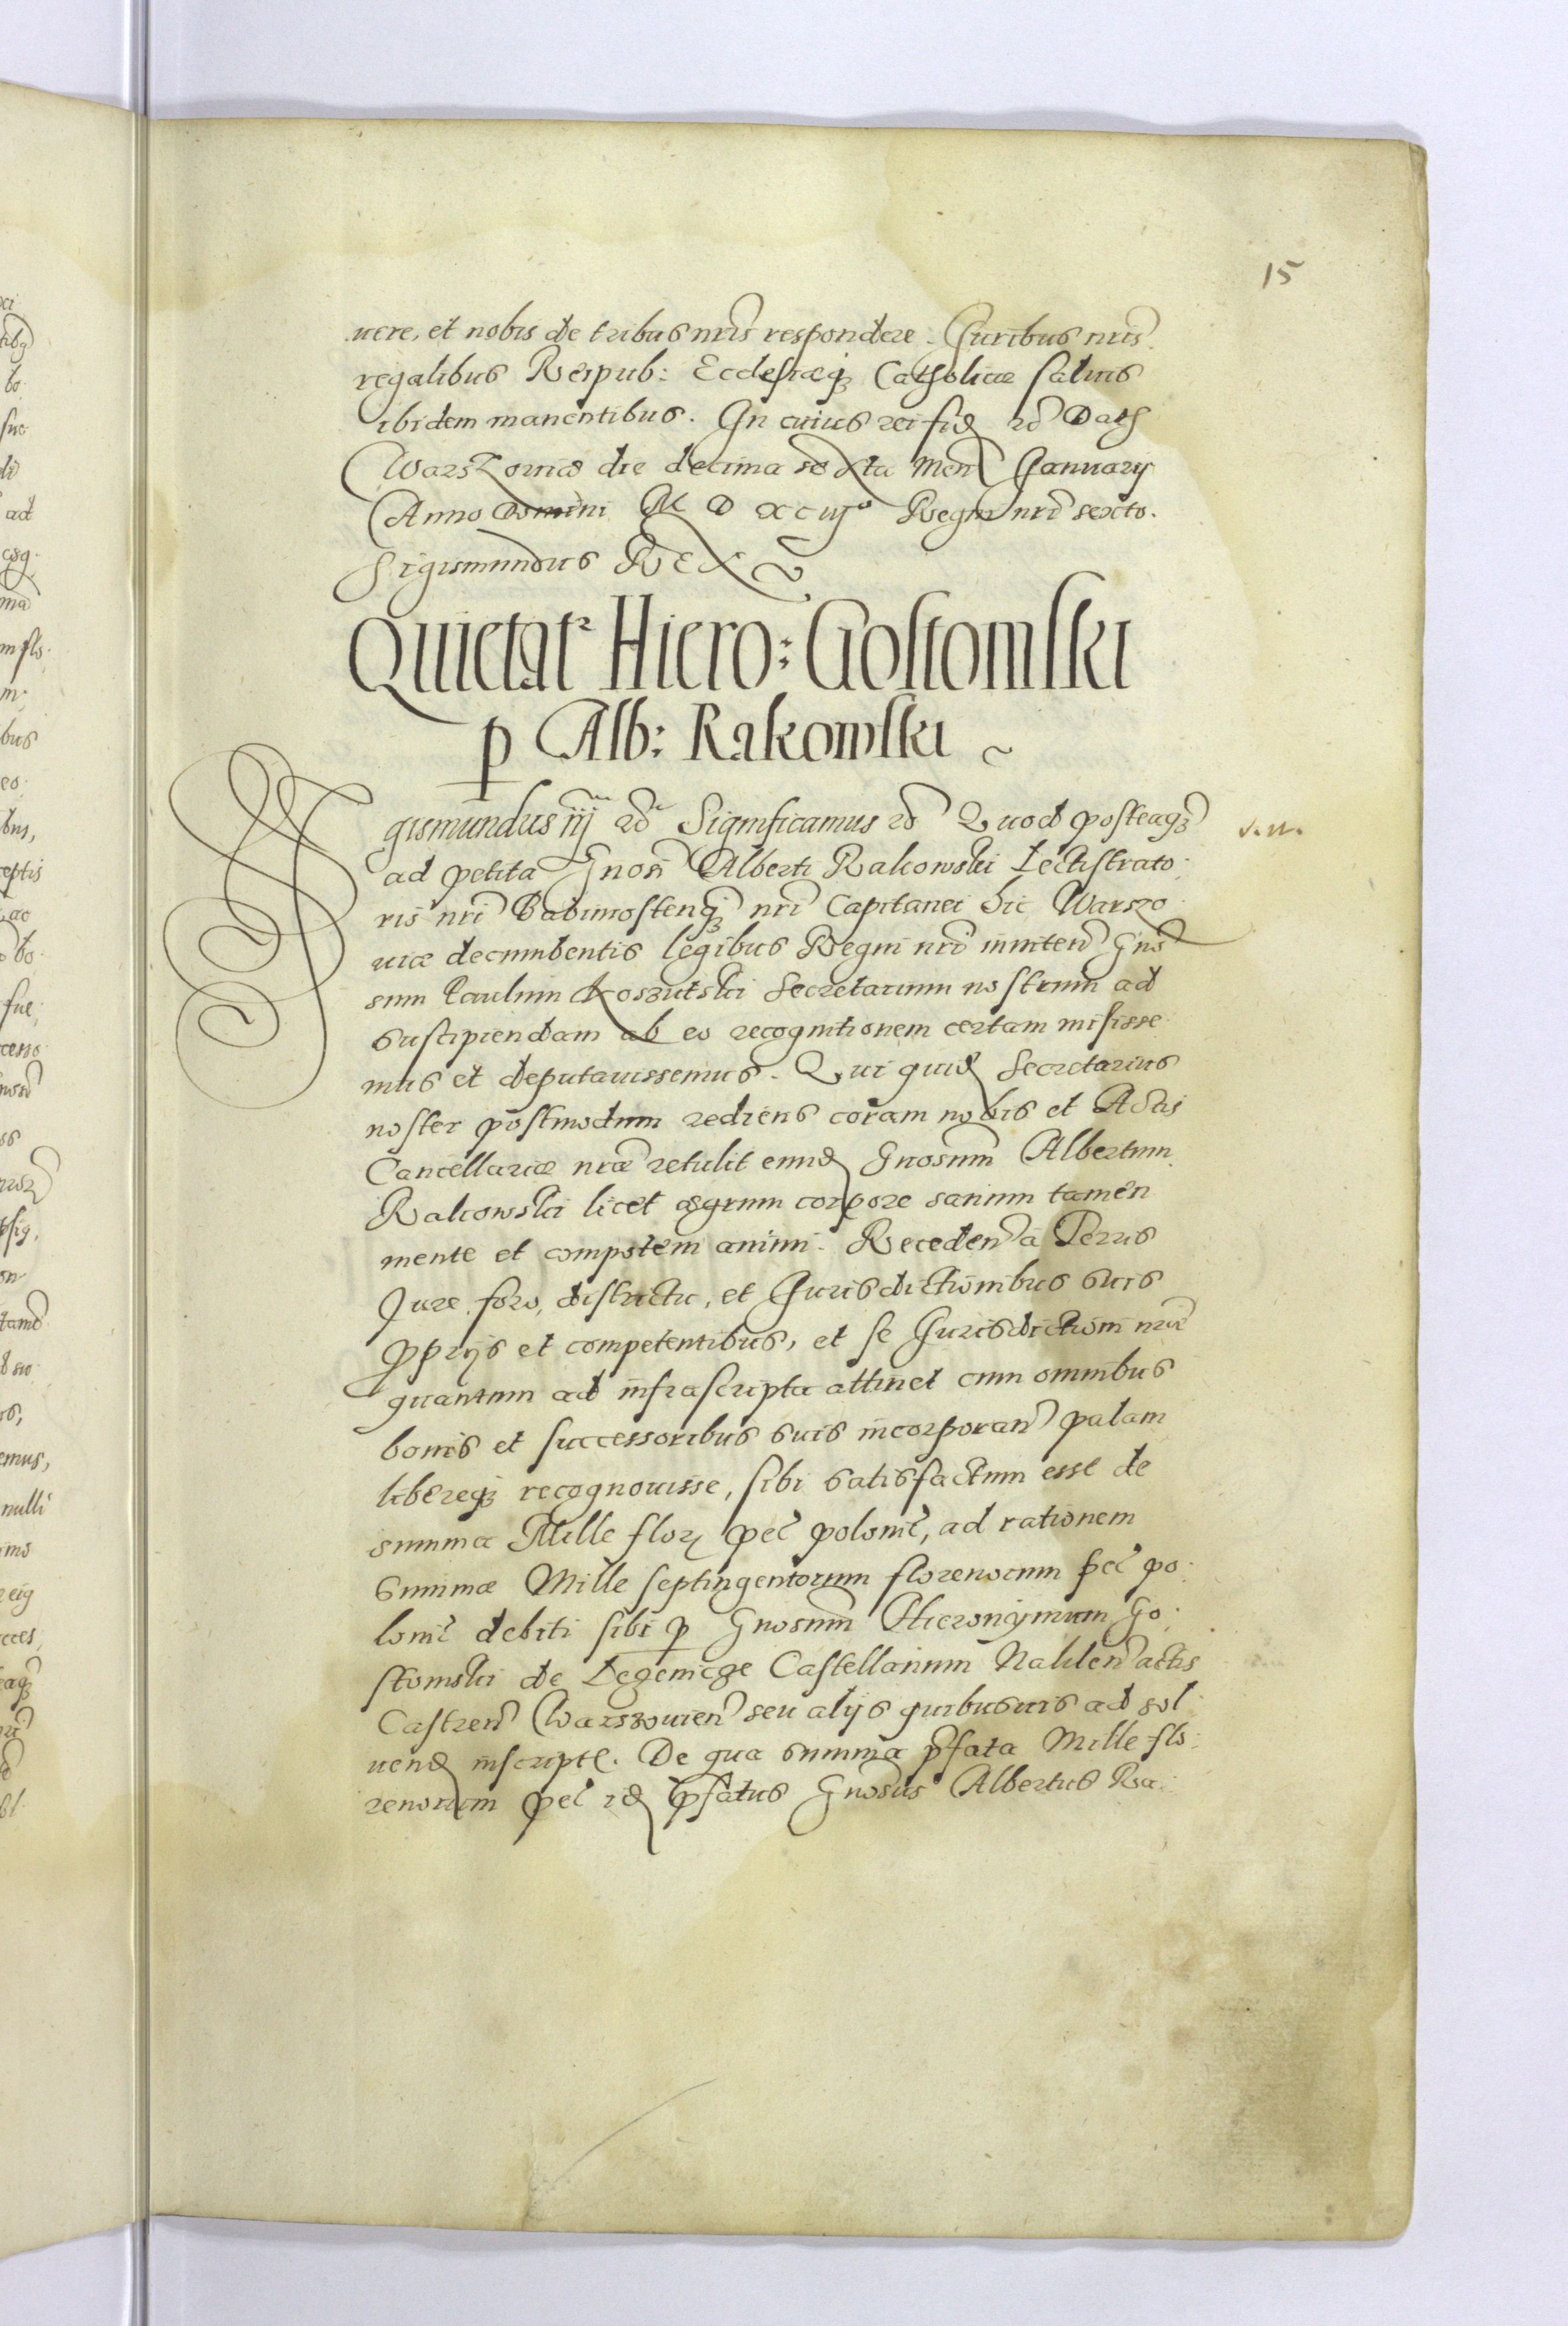 15
uere, et nobis de tribus nris respondere. Juribus nris
regalibus Reipub: Ecclesiaeq3 Catholicae saluis
ibidem manentibus. In cuius rei fid
Warszouiae die decima sexta Men Januarij
Anno Domini M D XCiijo Regni nri sexto.
Sigismundus REX
Quietat Hiero: Gostomski
p Alb: Rakowski
Sigismundus iij Significamus Quod posteaq3
ad petita Gnosi Alberti Rakowski Lectistrato
ris nri Babimostenq3 nri Capitanei hic Warszo
uiae decumbentis legibus Regni nri inniten Gno
sum Paulum Koszutski Secretarium nostrum ad
suscipiendam ab eo recognitionem certam misisse
mus et deputauissemus. Qui quid Secretarius
noster postmodum rediens coram nobis et Actis
Cancellariae nrae retulit eund Gnosum Albertum
Rakowski licet aegrum corpore sanum tamen
mente et compotem animi. Receden a Terris
Jure, foro, districtu, et Jurisdictionibus suis
pprijs et competentibus, et se Jurisdictioni nrae
quantum ad infrascripta attinet cum omnibus
bonis et successoribus suis incorporan palam
libereq3 recognouisse, sibi satisfactum esse de
summa Mille flor pec polonic, ad rationem
summae Mille septingentorum florenorum pec po
lonic debiti sibi p Gnosum Hieronymum Go
stomski de Lezenicze Castellanum Naklen actis
Castren Warszouien seu alijs quibusuis ad sol
uend inscript. De qua summa pfata Mille flo
renorum pec id pfatus Gnosus Albertus Ra